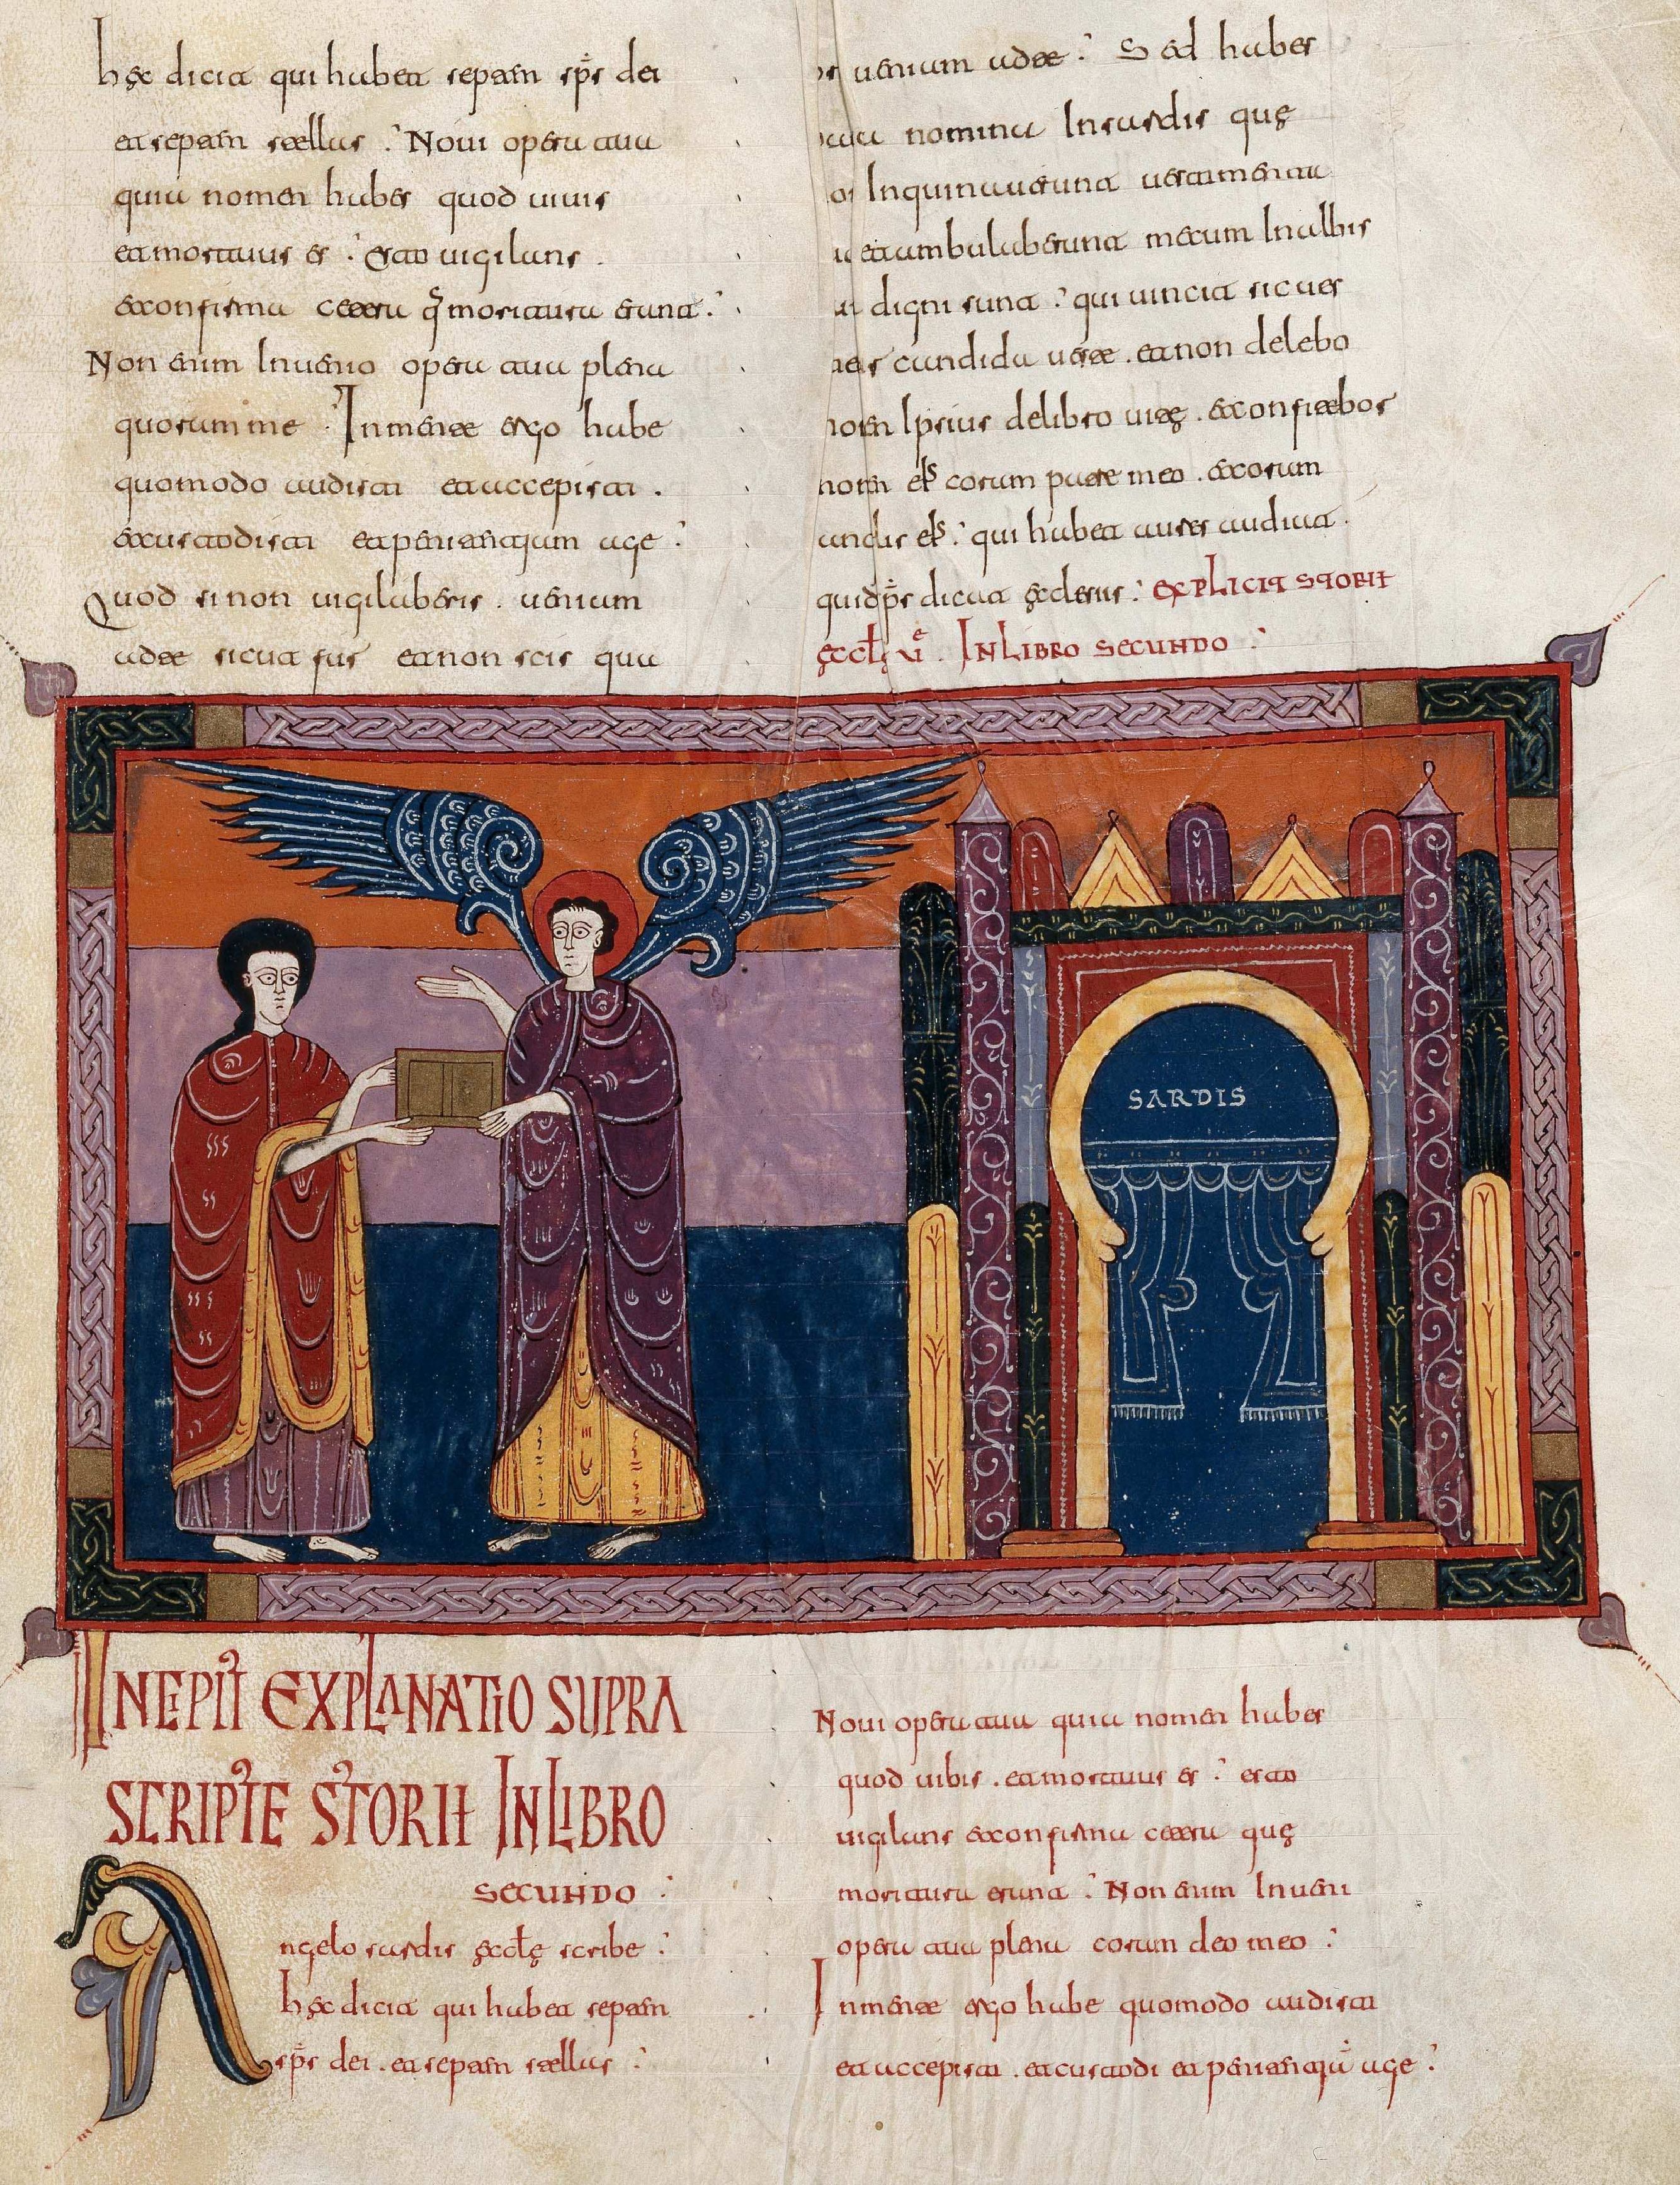 hęc dicit qui habet septem sp̄s dei
et septem stellas : Noui opera tua
quia nomen habes quod uiuis
et mortuus es : esto uigilans .
et confirma cetera q̄ moritura erant :
Non enim Inuenio opera tua plena
quorum me : In mente ergo habe
quomodo audisti et accepisti .
et custodisti et penitentiam age :
Quod si non uigilaberis . ueniam
ad te sicut fur et non scis qua
ueniam ad te : Sed habes
nomina In sardis quę
Inquinauerunt uestimenta
et ambulaberunt mecum In albis
digni sunt : qui uincit sic ues
candida ueste . et non delebo
Ipsius de libro uitę . et confitebor
eiˢ coram patre meo . et coram
eiˢ : qui habet aures audiat .
quid dicat ęcclesiis : EXPLICIT STORIE
IN LIBRO SECUNDO :
SARDIS
INCIPIT EXPLANATIO SUPRA
SCRIPTE STORIE IN LIBRO
SECUNDO :
Angelo sardis ęccłę scribe :
hęc dicit qui habet septem
sp̄s dei . et septem stellas :
Noui opera tua quia nomen habes
quod uibis . et mortuus es : esto
uigilans et confirma cetera quę
moritura erant : Non enim Inueni
opera tua plena coram deo meo :
In mente ergo habe quomodo audisti
et accepisti . et custodi et penitentiā age :